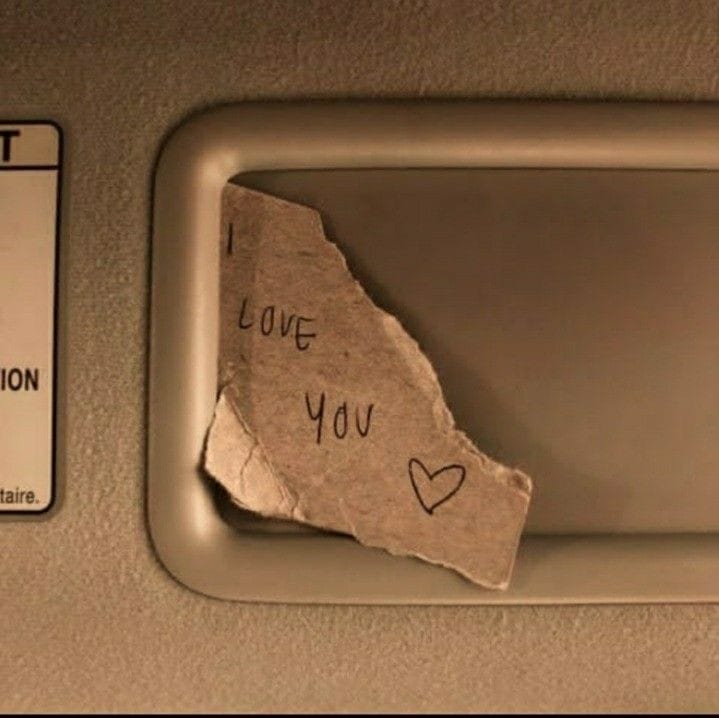 T
ION
taire.
I
LOVE
YOU